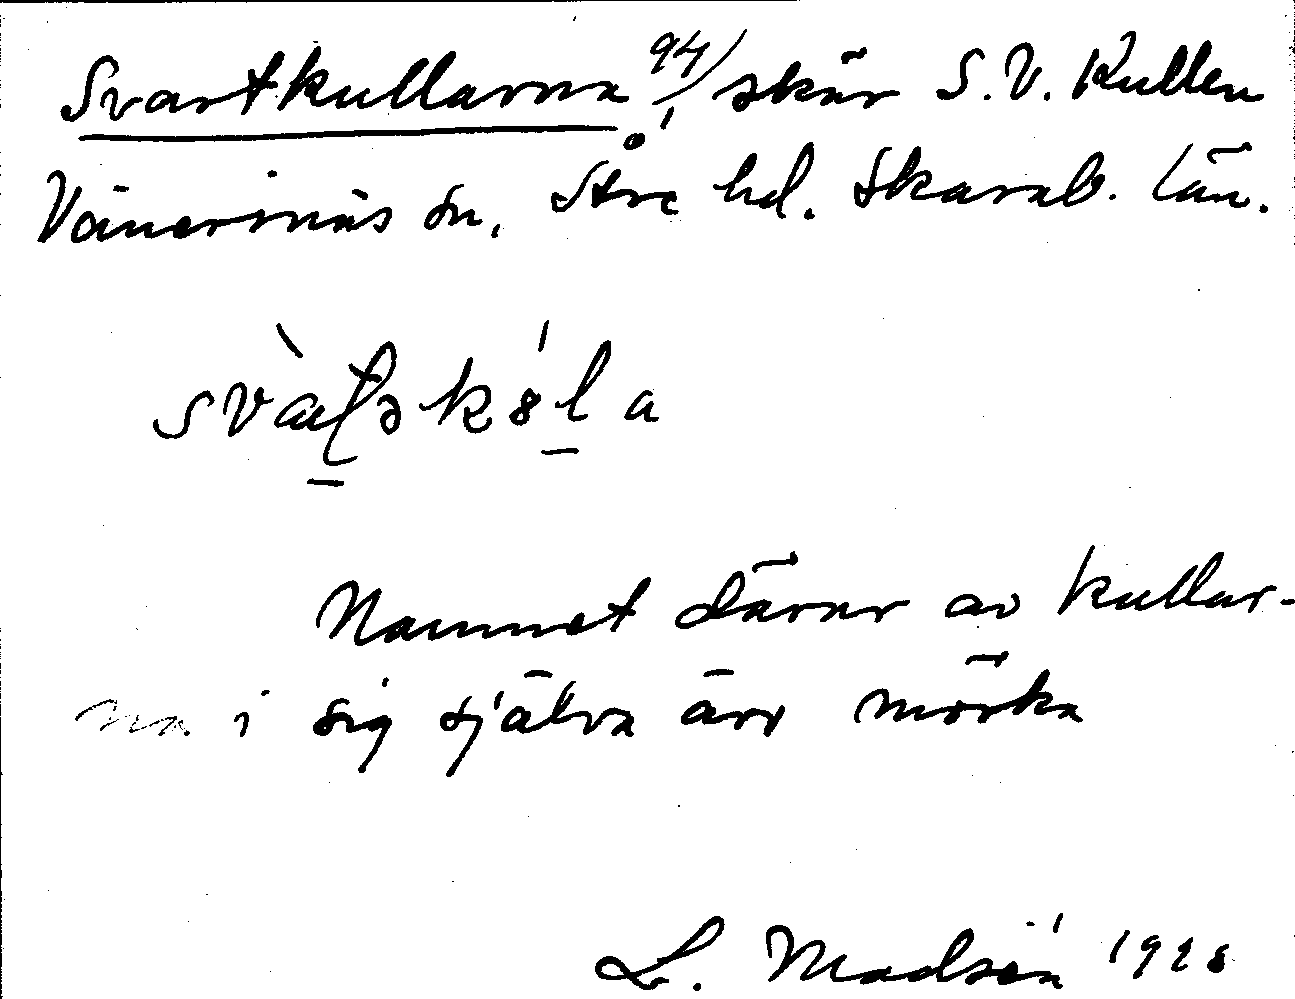 Svartkullarna 94/, skär S.V. Kullen
Vänersnäs sn, Åse hd. Skarab. län.
Namnet därav av kullar-
na i sig själva äro mörka
L. Modsén 1928